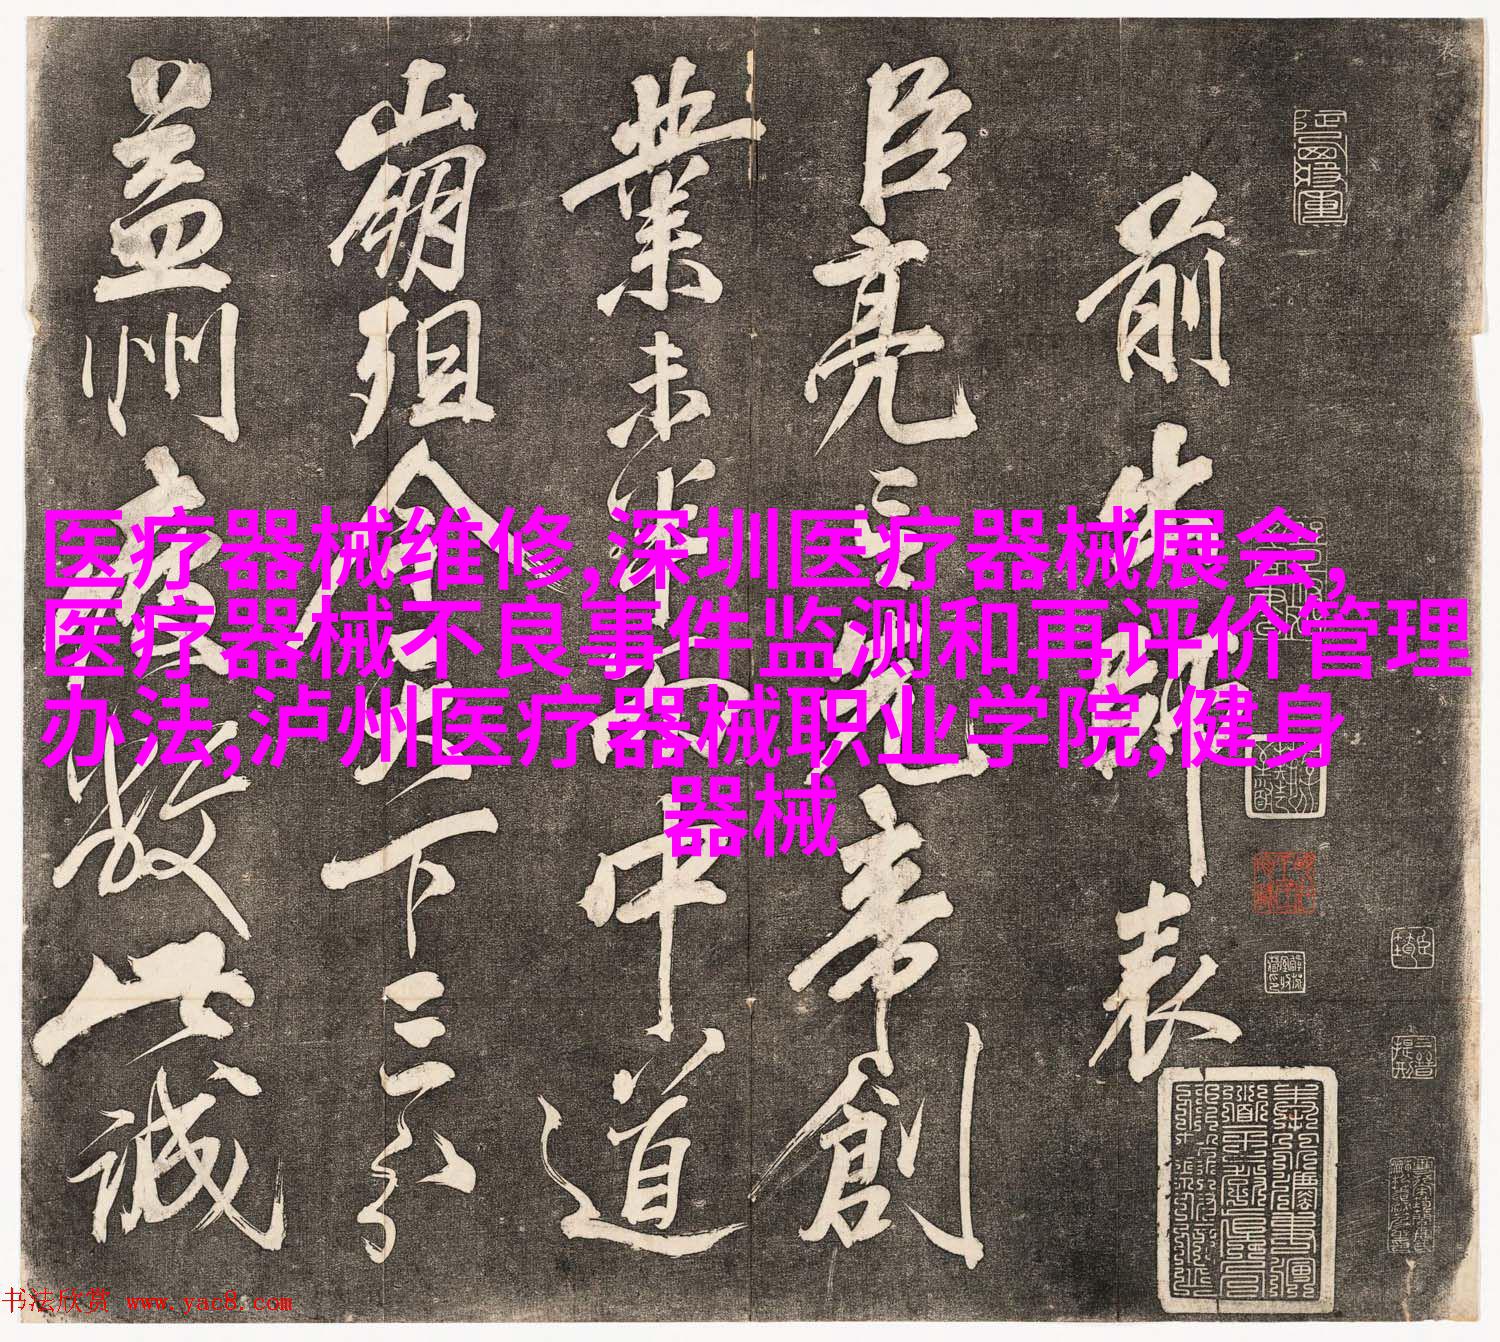 前出師表
臣亮言先帝創
業未半而中道
崩殂今天下三分
益州疲敝此誠
医疗器械维修,深圳医疗器械展会,
医疗器械不良事件监测和再评价管理
办法,泸州医疗器械职业学院,健身
器械
书法欣赏 www.yac8.com